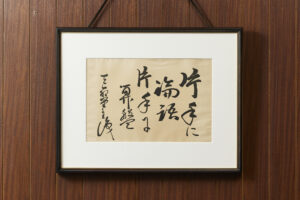 片手に
論語
片手に
算盤